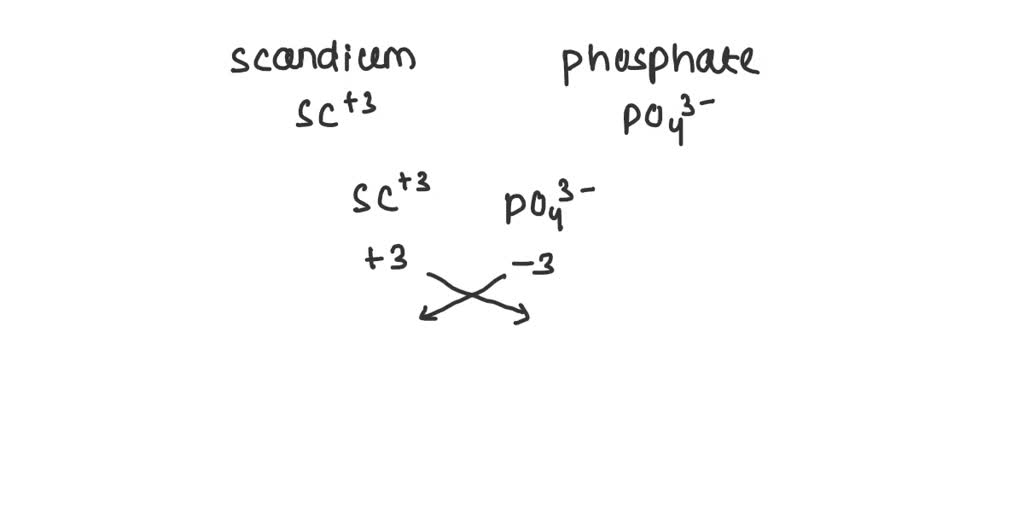 scandium phosphate
Sc⁺³ PO₄³⁻
Sc⁺³ PO₄³⁻
+3 -3